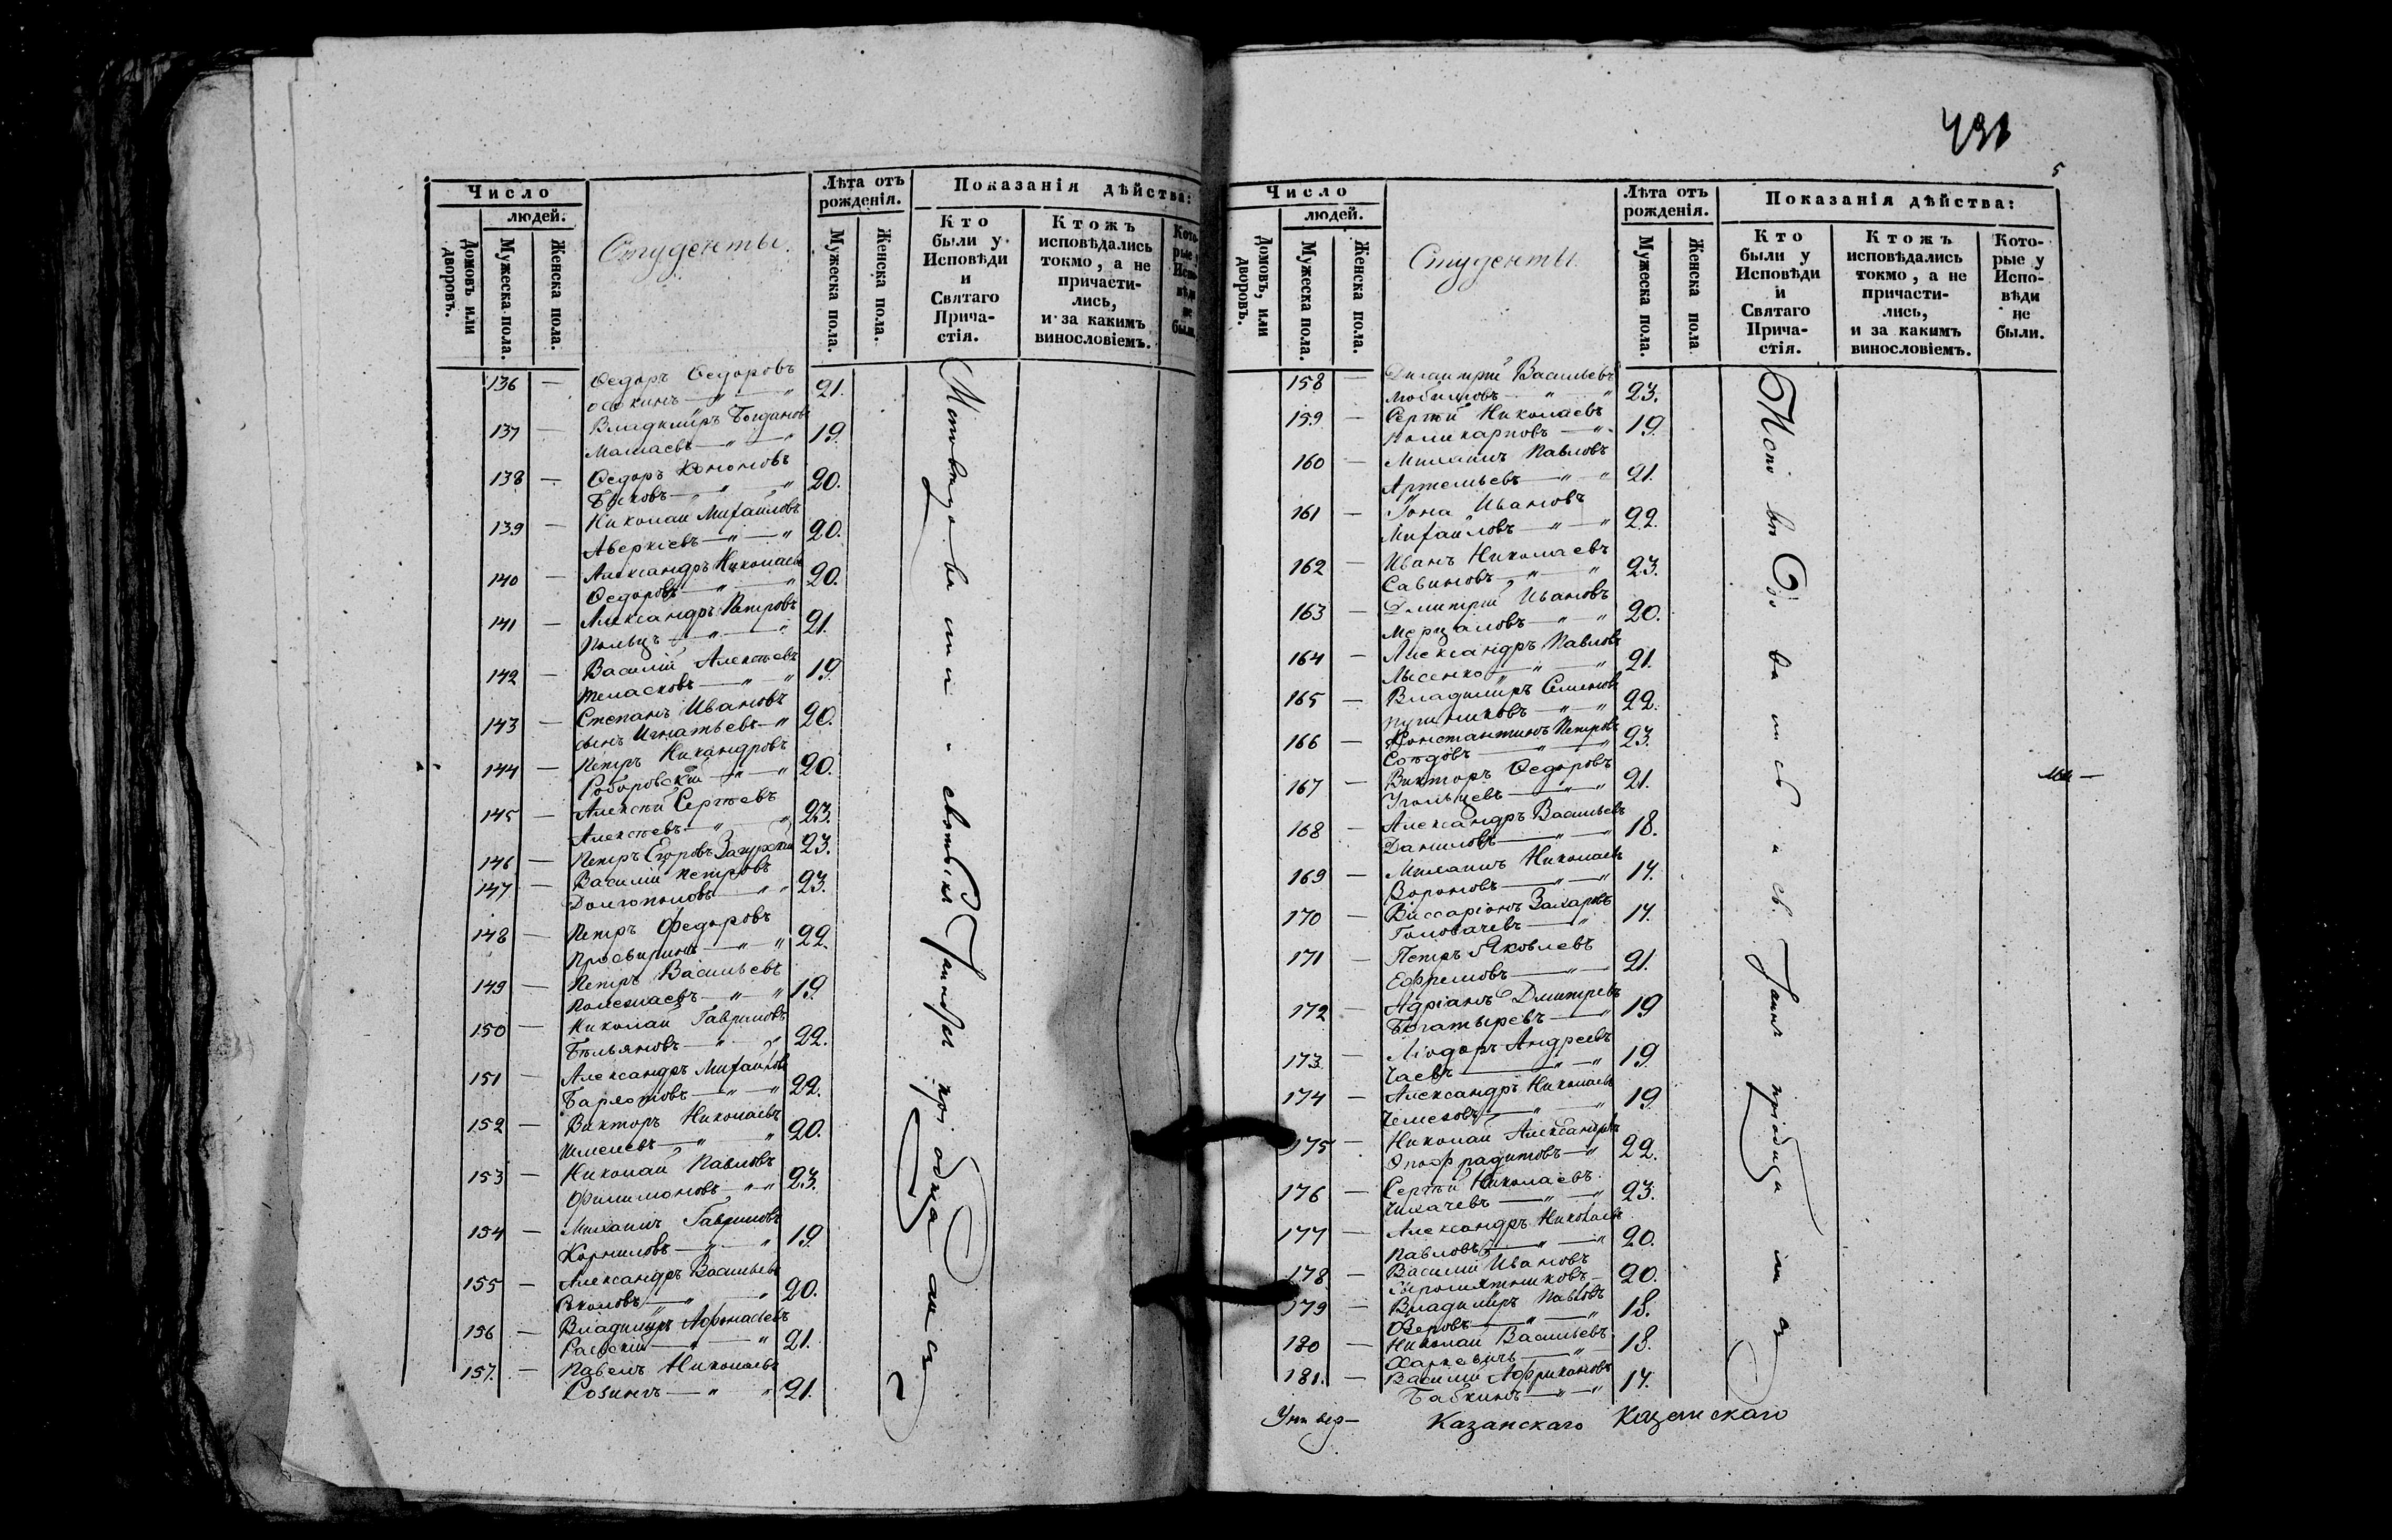 Число
людей.
Домовъ или дворовъ.
Мужеска пола.
Женска пола.
Студенты.
Лѣта отъ
рожденія.
Мужеска пола.
Женска пола.
Показанія дѣйства:
Кто
были у
Исповѣди
и
Святаго
Прича-
стія.
Ктожъ
исповѣдались
токмо, а не
причасти-
лись,
и за какимъ
винословіемъ.
136 — Ѳедоръ Ѳедоровъ
21.
137 — Владиміръ Богдановъ
19.
138 — Ѳедоръ Кононовъ
Быковъ — " — " 20.
139 — Николай Михайловъ
Аверкіевъ — " — " 20.
140 — Александръ Николаевъ
Ѳедоровъ — " — " 20.
141 — Александръ Петровъ
21.
142 — Василій Алексѣевъ
19.
143 — Степанъ Ивановъ
сынъ Игнатьевъ — " 20.
144 — Петръ Никандровъ
Роборовскій — " — " 20.
145 — Алексѣй Сергѣевъ
Алексѣевъ — " — " 23.
146 — Петръ Егоровъ Загурскій 23.
147 — Василій Петровъ
Долгополовъ — " — " 23.
148 — Петръ Федоровъ
Просвиринъ — " — " 22.
149 — Петръ Васильевъ
Полежаевъ — " — " 19.
150 — Николай Гавриловъ
Бѣльяновъ — " — " 22.
151 — Александръ Михайловъ
22.
152 — Викторъ Николаевъ
Шмелевъ — " — " 20.
153 — Николай Павловъ
Филимоновъ — " — " 23.
154 — Михаилъ Гавриловъ
Корниловъ — " — " 19.
155 — Александръ Васильевъ
20.
156 — Владиміръ Афонасьевъ
Раевскій — " — " 21.
157. — Павелъ Николаевъ
Созинъ — " — " 21.
431
5
Число
людей.
Домовъ, или дворовъ.
Мужеска пола.
Женска пола.
Студенты.
Лѣта отъ
рожденія.
Мужеска пола.
Женска пола
Показанія дѣйства:
Кто
были у
Исповѣди
и
Святаго
Прича-
стія.
Ктожъ
исповѣдались
токмо, а не
причасти-
лись,
и за какимъ
винословіемъ.
Кото-
рые у
Испо-
вѣди
не
были.
158 — Димитрій Васильевъ
Любимовъ — " — " 23.
159 — Сергѣй Николаевъ
Поликарповъ — " 19.
160 — Михаилъ Павловъ
Артемьевъ — " — " 21.
161 — Іона Ивановъ
Михайловъ — " — " 22.
162 — Иванъ Николаевъ
Савиновъ — " — " 23.
163 — Дмитрій Ивановъ
Мерцаловъ — " — " 20.
164 — Александръ Павловъ
Лысенко — " — " 21.
165 — Владиміръ Семеновъ
22.
166 — Константинъ Петровъ
23.
167 — Викторъ Ѳедоровъ
Угольцевъ — " — " 21.
168 — Александръ Васильевъ
Даниловъ — " — " 18.
169 — Михаилъ Николаевъ
Вороновъ — " — " 17.
170 — Виссаріонъ Захаровъ
Головачевъ — " 17.
171 — Петръ Яковлевъ
Ефремовъ — " — 21.
172 — Адріанъ Дмитревъ
Богатыревъ — " 19
173 — Ліодоръ Андреевъ
Чаевъ — " — " 19.
174 — Александръ Николаевъ
Чемезовъ — " — " 19.
175 — Николай Александровъ
22.
176 — Сергѣй Николаевъ
Лихачевъ — " — " 23.
177 — Александръ Николаевъ
Павловъ — " — " 20.
178 — Василій Ивановъ
Сыромятниковъ — 20.
179 — Владиміръ Павловъ
Озеровъ — " — " 18.
180 — Николай Васильевъ
Харкевичъ — " — 18.
181. — Василій Африкановъ
Бабкинъ — " — " 17.
Исповѣдовались и св. Таинъ пріобщались
Казанскаго Казанскаго